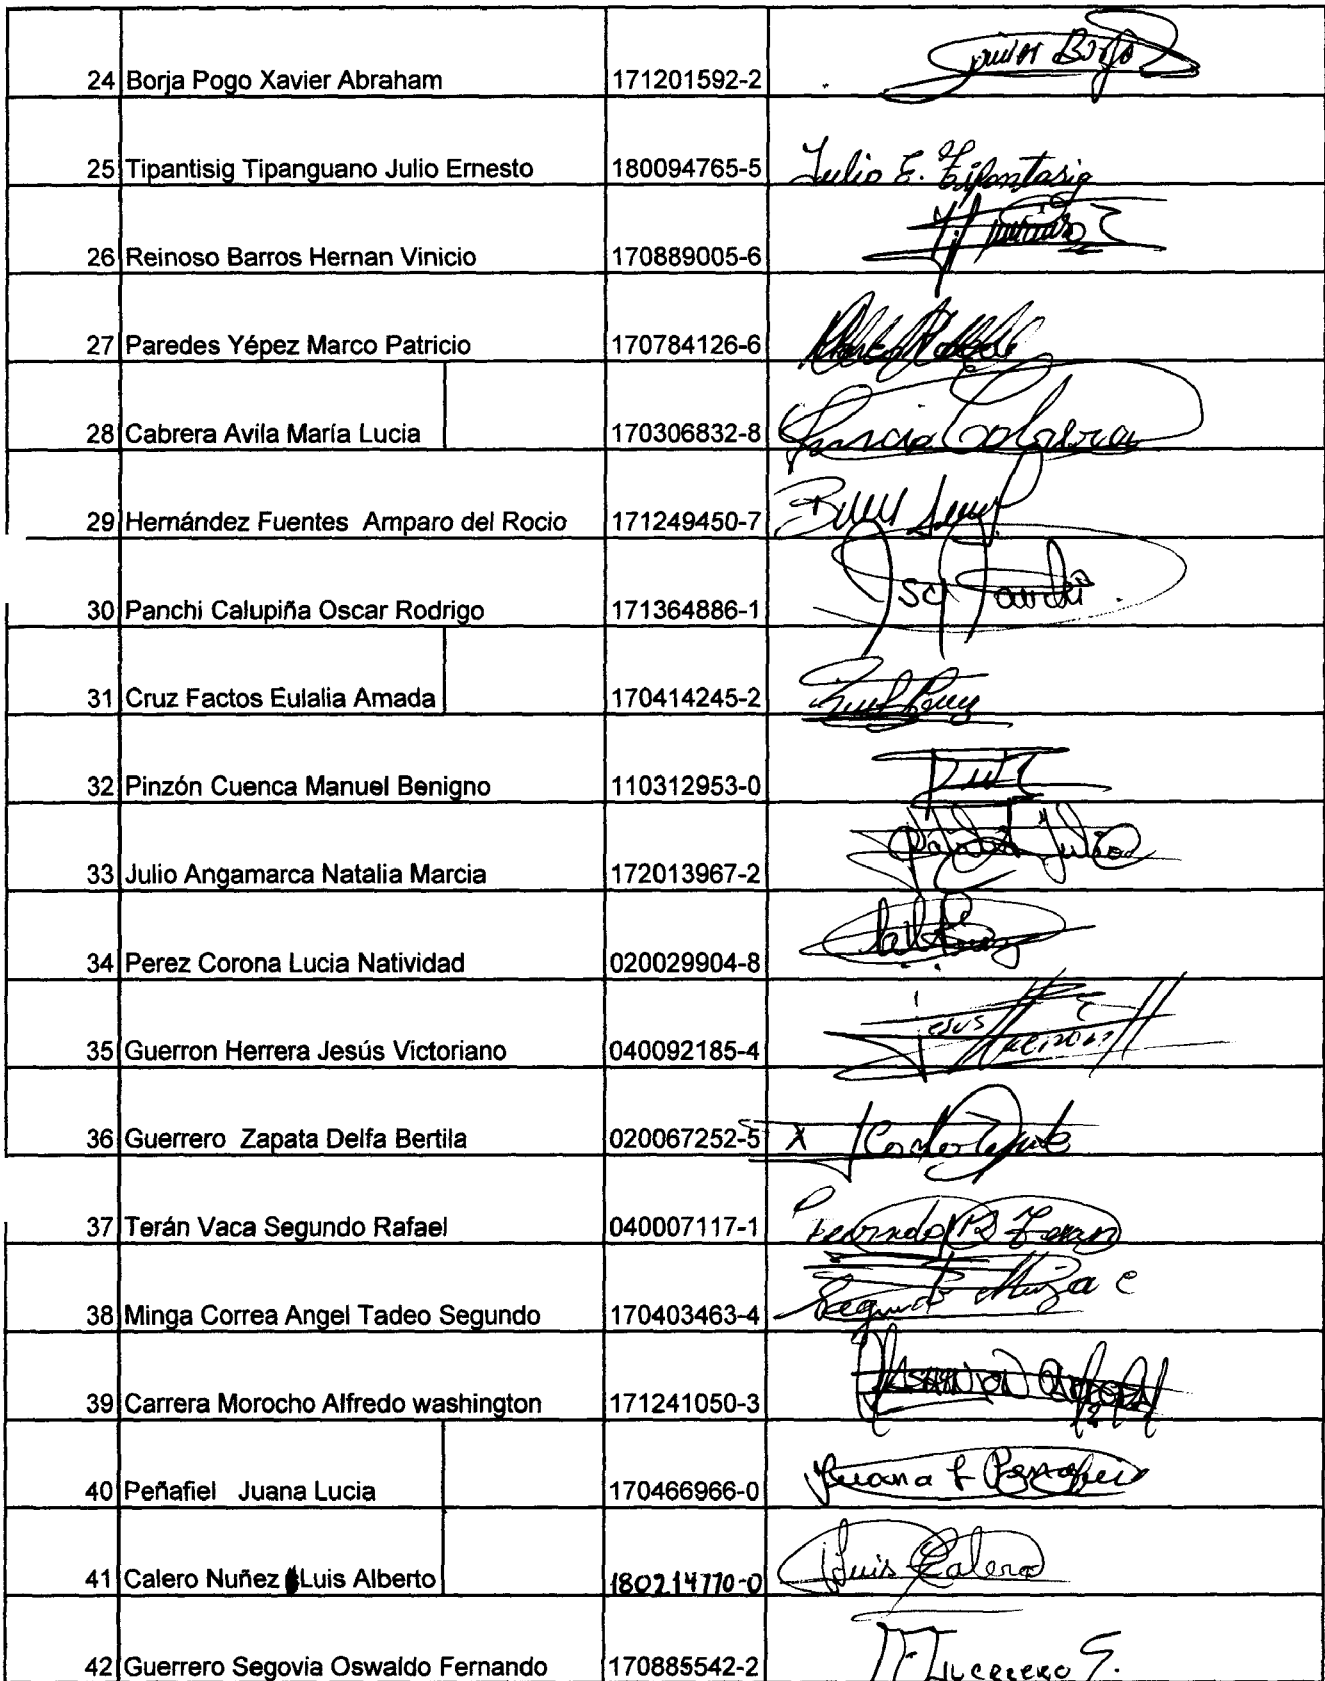 24 Borja Pogo Xavier Abraham 171201592-2
25 Tipantisig Tipanguano Julio Ernesto 180094765-5 Julio E. Tipantasig
26 Reinoso Barros Hernan Vinicio 170889005-6
27 Paredes Yépez Marco Patricio 170784126-6
28 Cabrera Avila María Lucia 170306832-8
29 Hernández Fuentes Amparo del Rocio 171249450-7
30 Panchi Calupiña Oscar Rodrigo 171364886-1
31 Cruz Factos Eulalia Amada 170414245-2
32 Pinzón Cuenca Manuel Benigno 110312953-0
33 Julio Angamarca Natalia Marcia 172013967-2 Julio
34 Perez Corona Lucia Natividad 020029904-8
35 Guerron Herrera Jesús Victoriano 040092185-4 Jesus
36 Guerrero Zapata Delfa Bertila 020067252-5 X
37 Terán Vaca Segundo Rafael 040007117-1
38 Minga Correa Angel Tadeo Segundo 170403463-4 Segundo Minga C
39 Carrera Morocho Alfredo washington 171241050-3
40 Peñafiel Juana Lucia 170466966-0 Juana L Peñafiel
41 Calero Nuñez Luis Alberto 180214770-0 Luis Calero
42 Guerrero Segovia Oswaldo Fernando 170885542-2 Guerrero S.